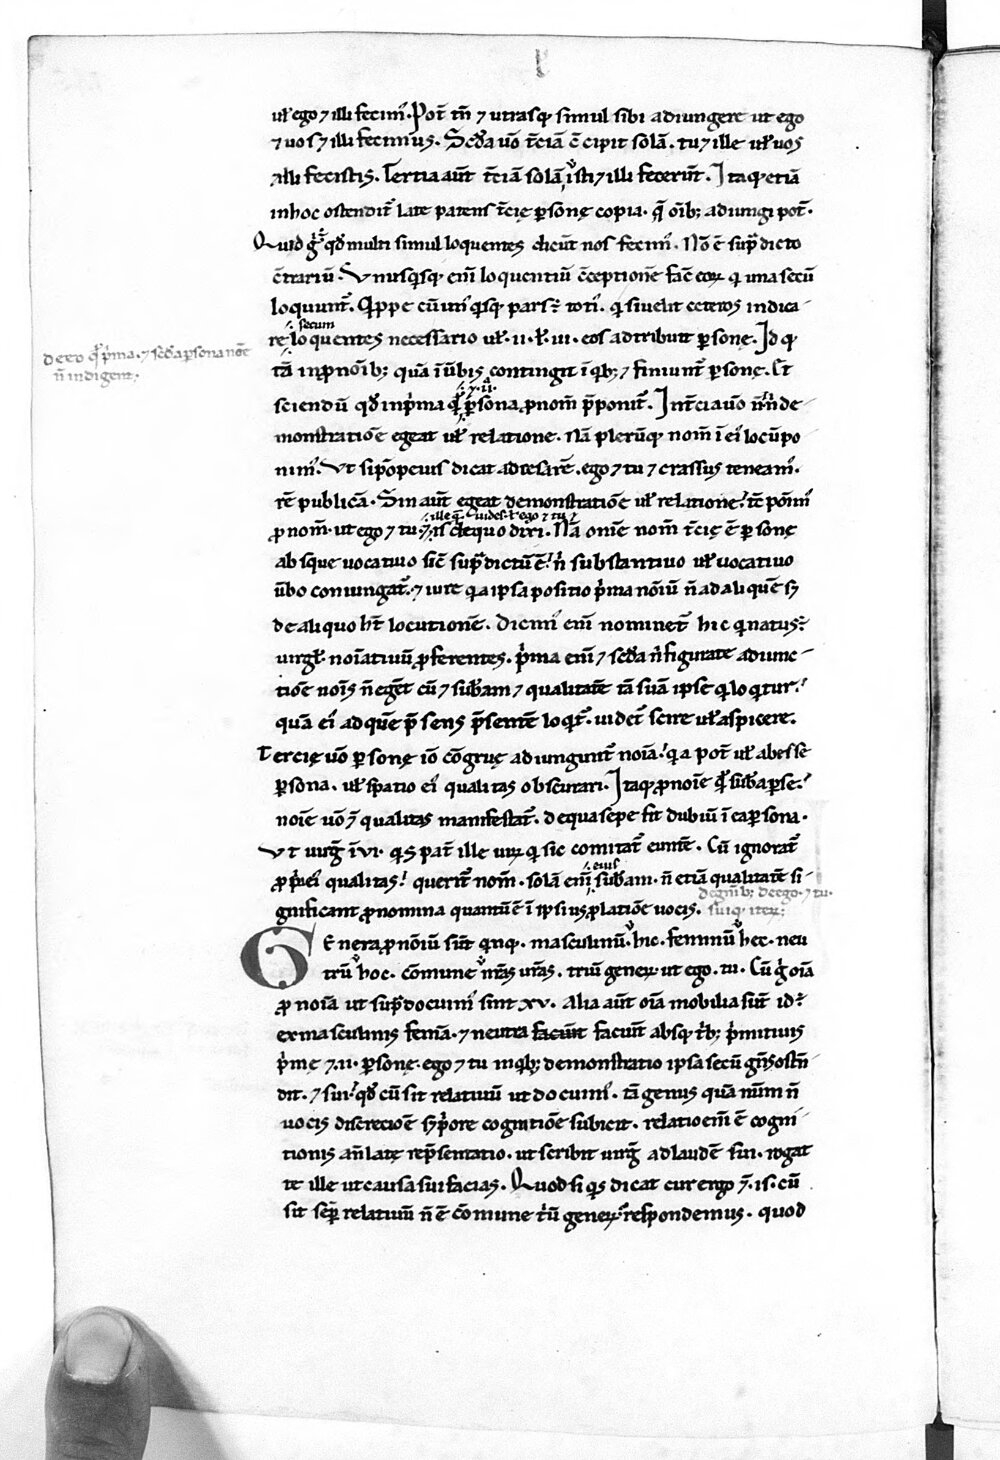 ul̄ ego ⁊ illi fecim᷒. Pot̄ tn̄ ⁊ utrasq; simul sibi adiungere ut ego
⁊ uos ⁊ illi fecimus. Scd̄a uō t̄ciā c̄cipit solā. tu ⁊ ille ul̄ uos
⁊ illi fecistis. Tertia aūt t̄ciā solā isti ⁊ illi fecer̄t. Itaq; etiā
in hoc ostendit̄ late patens t̄cię p̄sonę copia. q̄ oīb; adiungi pot̄.
Quid ḡ qd̄ multi simul loquentes dicūt nos fecim᷒. Nō ē sup̄dicto
c̄trariū. Vnusq̄sq; eni̅ loquentiū c̄ceptionē fac̄ eoꝝ q̇ una secū
loquunt̄. Qippe cū uni᷒ q̇sq; pars ē toti᷒. q̇ siue ut ceteros indica-
re loquentes necessario ul̄ .ii. ł .iii. eos adtribuit p̄sonę. Id q;
secum
de eo q̄ p̄ma ⁊ scd̄a persona nōe
n̄ indigent;
tā in p̄noīb; quā in ūbis contingit in q̇b; ⁊ finiunt̄ p̄sonę. Et
sciendū qd̄ in p̄ma q̄ p̄sona p̄nom̄ p̄ponit̄. In t̄cia uō n̄ n̄ de-
⁊ .ii.
monstratiōe egeat ul̄ relatione. Nā plerūq; nom̄ in ei᷒ locū po-
nim᷒. Vt si pōpeius dicat ad cesarē. ego ⁊ tu ⁊ crassus teneam᷒
rē publicā. Sin aūt egeat demonstratiōe ul̄ relatione. t̄c pōnim᷒
p̄nom̄. ut ego ⁊ tu ⁊ is de quo dixi. Nā omē nom̄ t̄cię ē p̄sonę
ille q̄ uides. ł ego ⁊ tu ⁊
absque uocatiuo sic̄ sup̄dictū ē. n̄ substantiuo ul̄ uocatiuo
ūbo coniungat̄. ⁊ iure q̇a ipsa positio p̄ma nōiū n̄ ad aliquē s;
de aliquo ht̄ locutionē. Dicim᷒ eni̅ nominet̄ hic q̇ natus ē
uirgl̄. noīatiuū proferentes. p̄ma eni̅ ⁊ scd̄a n̄ figurate adiunc-
tiōe noīs n̄ eget cū ⁊ sub̄am ⁊ qualitatē tā suā ipse q̇ loq̇tur.
quā ei᷒ ad quē p̄sens p̄sentē loq̇t̄. uidet̄ scire ul̄ aspicere.
Tercię uō p̄sonę iō cōgruę adiungunt̄ noīa. q̇a pot̄ ul̄ abesse
p̄sona. ul̄ spatio ei᷒ qualitas obscurari. Itaq; p̄noīe q̇ sub̄a p̄se.
noīe uō ⁊ qualitas manifestat̄. de qua sepe fit dubiū in ea p̄sona.
Vt uirḡ in vi. q̇s pat̄ ille uirū q̇ sic comitat̄ euntē. Cū ignorat̄
p̄p̄ei᷒ qualitas. querit̄ nom̄. solā eni̅ sub̄am. n̄ etiā qualitatē si-
eius
gnificant p̄nomina quantū ē in ipsius p̄latiōe uocis.
de gn̄ib; de ego. ⁊ tu.
sui q; iteꝝ;
Genera p̄nōiū sūt q̇nq;. masculinū hic. feminū hec. neu
trū hoc. cōmune mās urās. triū geneꝝ ut ego. tu. Cū ḡ oīa
p̄noīa ut sup̄ docuim᷒ sint xv. Alia aūt oīa mobilia sūt id ē
ex masculinis femīa ⁊ neutra faciūt faciūt absq; t̄b; p̄mitiuis
p̄mę ⁊ .ii. p̄sonę. ego ⁊ tu in q̇b; demonstratio ipsa secū gn̄s ostn̄-
dit. ⁊ sui qd̄ cū sit relatiuū ut docuim᷒. tā genus quā num̄ n̄
uocis discreciōe s; p̄ore cognitiōe subicit. relatio eni̅ ē cogni-
tionis an̄latę rep̄sentatio. ut scribit uirḡ ad laudē sui. rogat
te ille ut causa sui facias. Quod si q̇s dicat cur ergo ⁊ is. cū
sit sēp relatiuū n̄ ē cōmune triū geneꝝ respondemus. quod